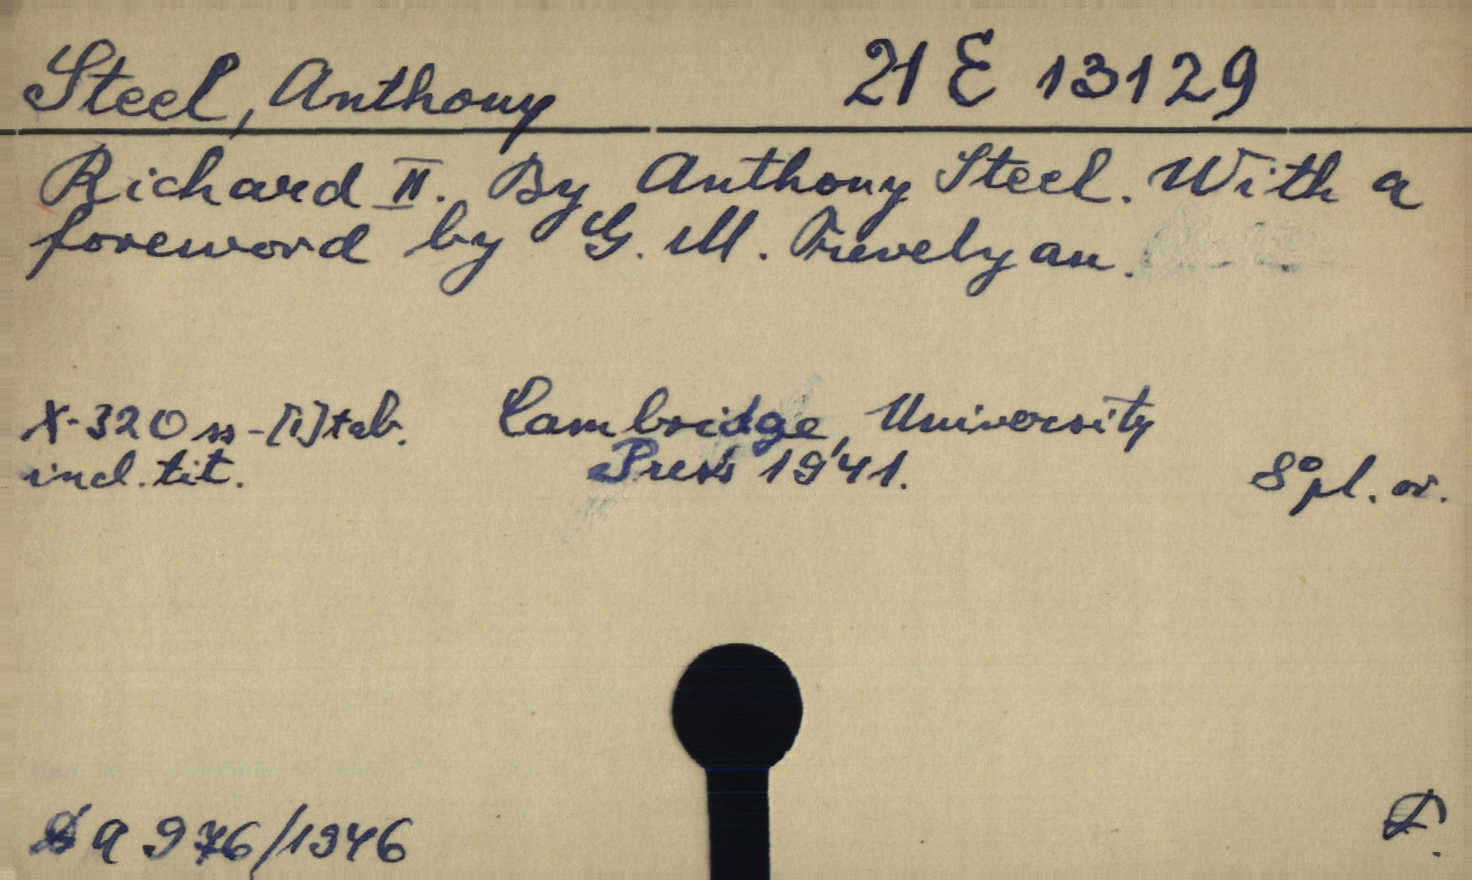 Steel, Anthony 21 E 13129
Richard II. By Anthony Steel. With a
foreword by G. M. Trevelyan.
X-320 ss-[1] tab. Cambridge, University
incl. tit. Press 1941. 8° pl. or.
a 976/1946